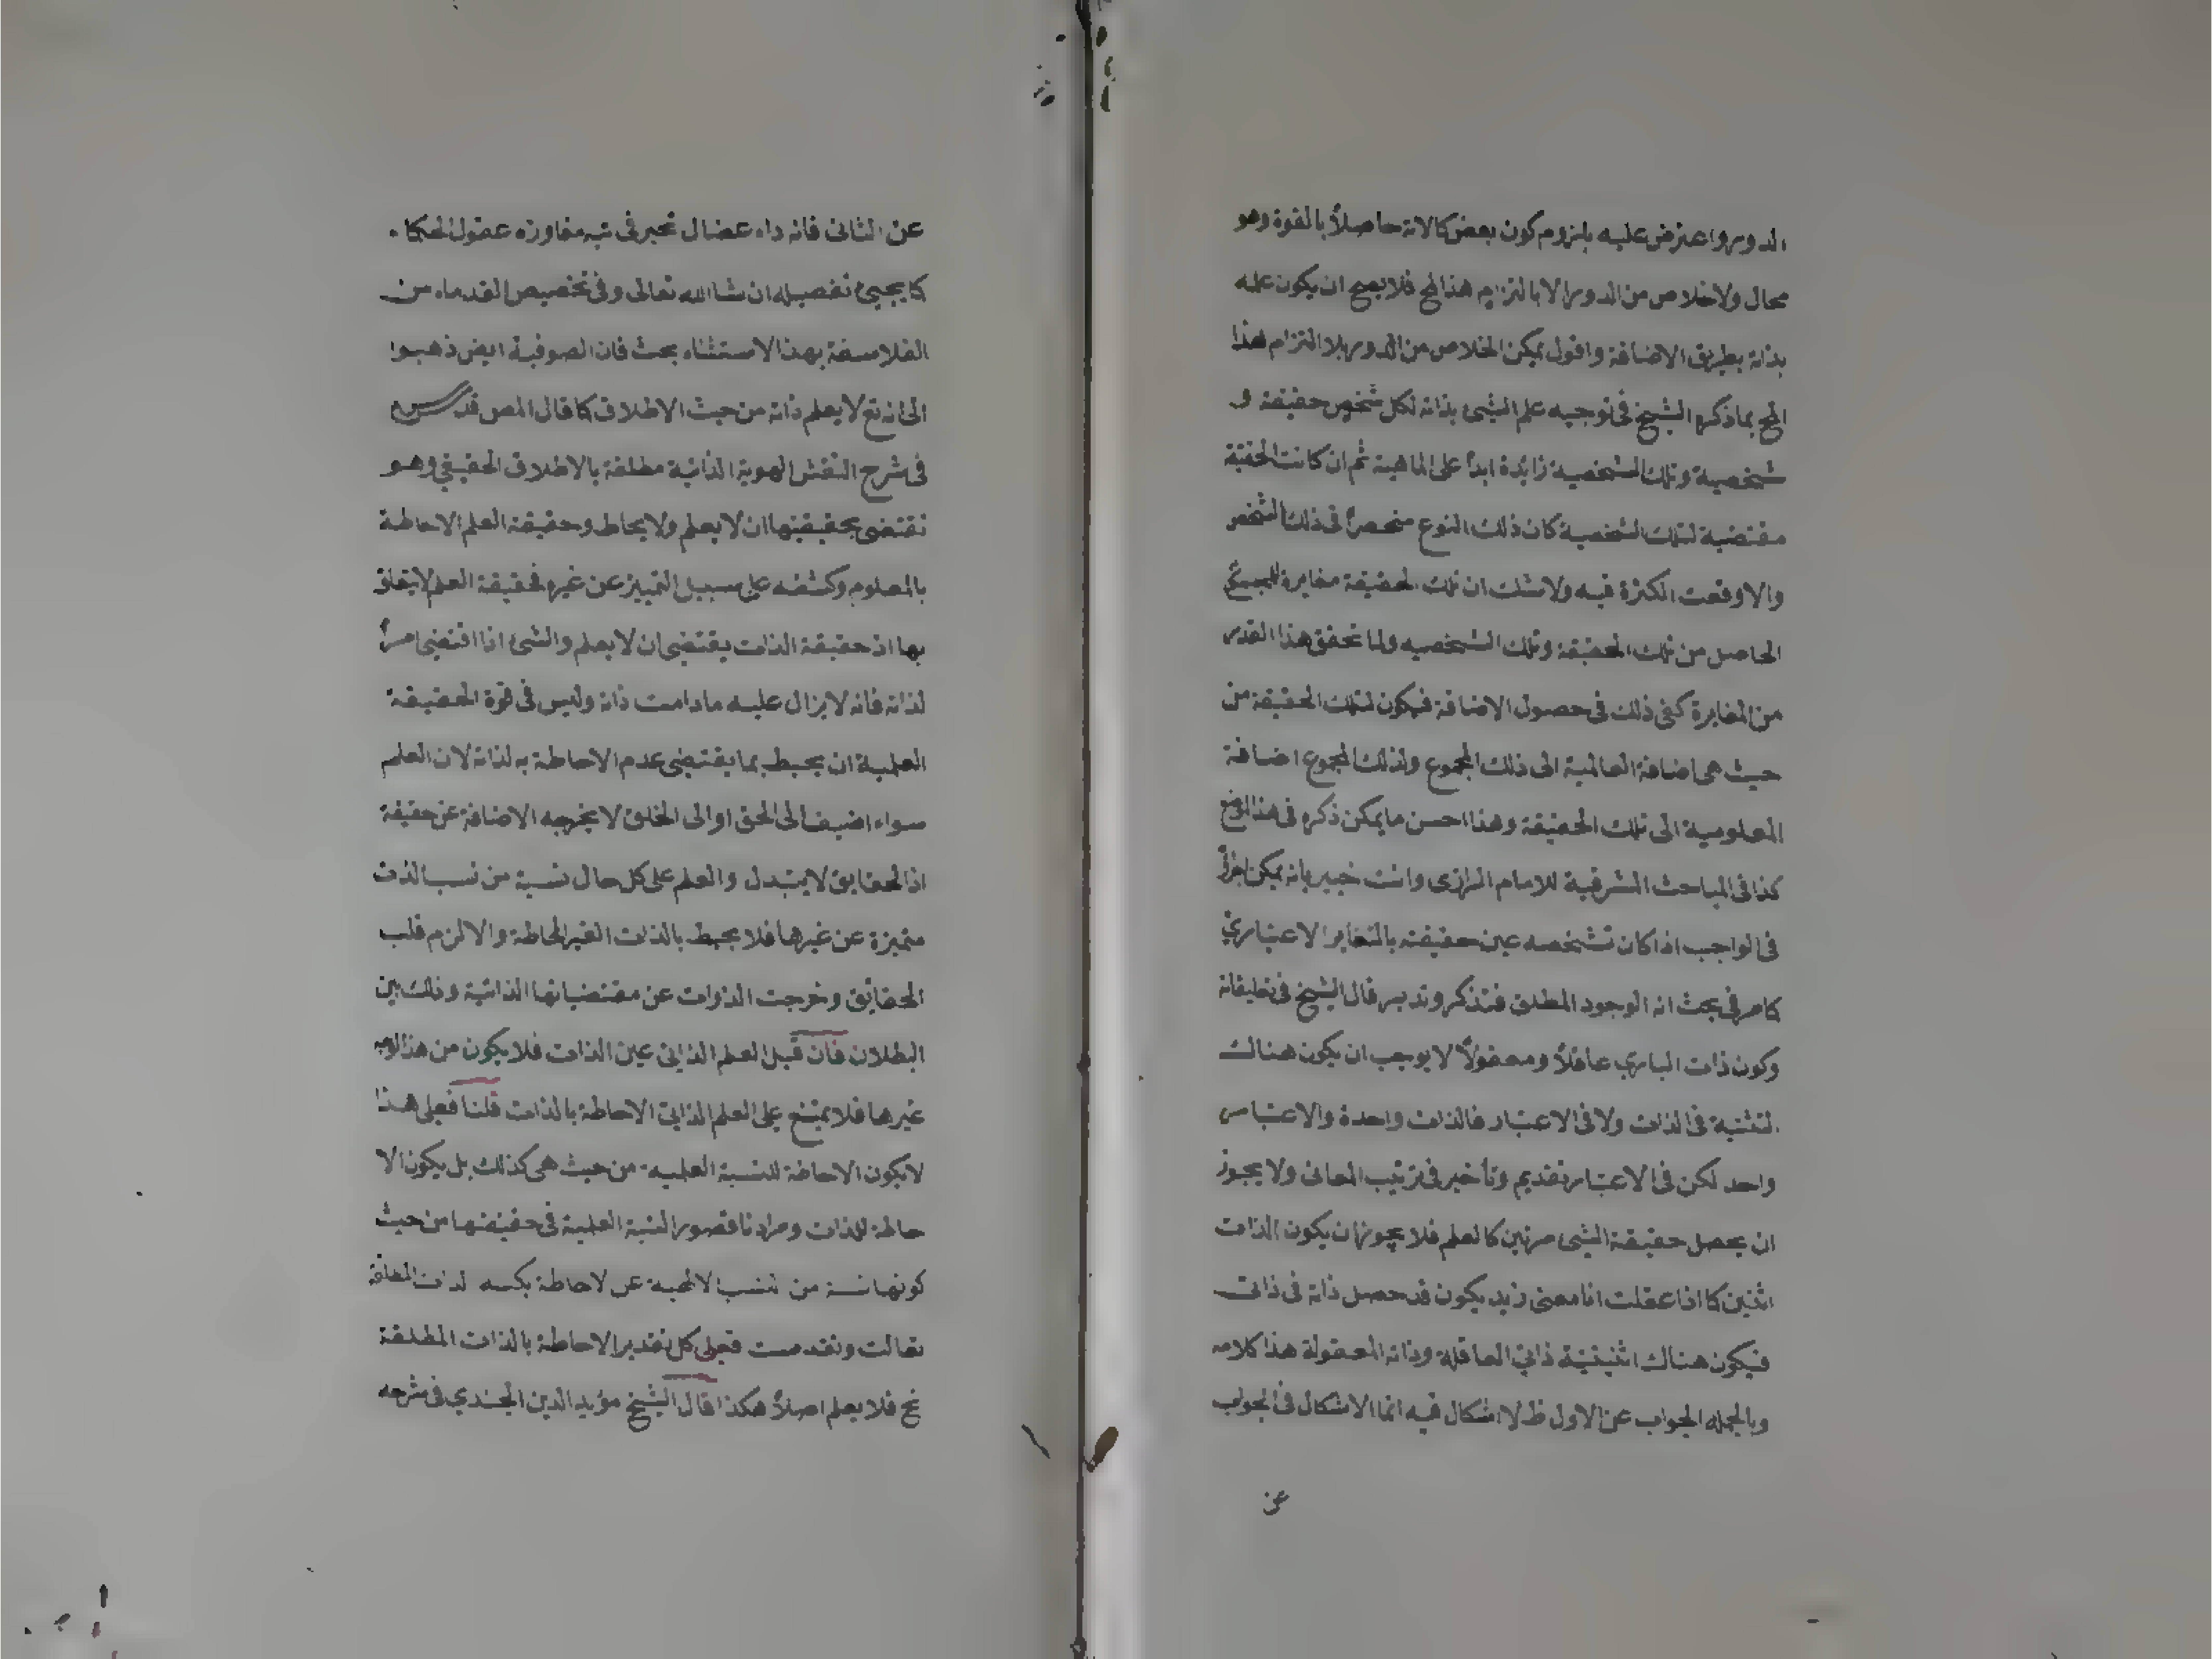 الدور واعترض عليه بلزوم كون بعض كمالاته حاصلاً بالقوة وهو
محال ولاخلاص من الدور الا بالتزام هذا المح فلا يصح ان يكون علمه
بذاته بطريق الاضافة واقول يمكن الخلاص من الدور بلا التزام هذا
المح بما ذكره الشيخ فى توجيه علم الشيى بذاته لكل شخص حقيقة و
شخصية وتلك الشخصية زايدة ابدا على الماهية ثم ان كانت الحقيقة
مقتضية لتلك الشخصية كان ذلك النوع منحصراً فى ذلك الشخص
والا وقعت الكثرة فيه ولاشك ان تلك الحقيقة مغايرة للمجموع
الحاصل من تلك الحقيقة وتلك الشخصيه ولما تحقق هذا القدر
من المغايرة كفى ذلك فى حصول الاضافة فيكون لتلك الحقيقة من
حيث هى اضافة العالمية الى ذلك المجموع ولذلك المجموع اضافة
المعلومية الى تلك الحقيقة وهذا احسن ما يمكن ذكره فى هذا الموضع
كذا فى المباحث المشرقية للامام الرازى وانت خبير بانه يمكن اجراؤه
فى الواجب اذا كان تشخصه عين حقيقته بالتغاير الاعتباري
كما مر فى بحث انه الوجود المطلق فتذكر وتدبر قال الشيخ فى تعليقاته
وكون ذات الباري عاقلاً ومعقولاً لا يوجب ان يكون هناك
اثنينية فى الذات ولا فى الاعتبار فالذات واحدة والاعتبار
واحد لكن فى الاعتبار تقديم وتأخير فى ترتيب المعانى ولا يجوز
ان يحصل حقيقة الشيى مرتين كالعلم فلا يجوز ان يكون الذات
اثنين كما اذا عقلت انا معنى زيد يكون قد حصل ذاته فى ذاتى
فيكون هناك اثنينية ذاتي العاقلة وذاته المعقولة هذا كلامه
وبالجمله الجواب عن الاول ظ لا اشكال فيه انما الاشكال فى الجواب
عن
عن الثانى فانه داء عضال تحير فى تيه مفاوزه عقول الحكماء
كما يجيئ تفصيله ان شا الله تعالى وفى تخصيص القدماء من
الفلاسفة بهذا الاستثناء بحث فان الصوفية ايض ذهبوا
الى انه تع لا يعلم ذاته من حيث الاطلاق كما قال المص قدس سره
فى شرح الفص الهوية الذاتية مطلقة بالاطلاق الحقيقي وهو
تقتضى بحقيقتها ان لا يعلم ولا يحاط وحقيقة العلم الاحاطة
بالمعلوم وكشفه على سبيل التمييز عن غيره فحقيقة العلم لا يتعلق
بها اذ حقيقة الذات يقتضى ان لا يعلم والشئ اذا اقتضى امراً
لذاته فانه لا يزال عليه مادامت ذاته وليس فى قوة الحقيقة
العلمية ان يحيط بما يقتضى عدم الاحاطة به لذاته لان العلم
سواء اضيف الى الحق او الى الخلق لا يخرجه الاضافة عن حقيقة
اذ الحقايق لا يتبدل والعلم على كل حال نسبة من نسب الذات
متميزة عن غيرها فلا يحيط بالذات الغير المحاطة والا لزم قلب
الحقائق وخرجت الذوات عن مقتضياتها الذاتية وذلك بين
البطلان فان قيل العلم الذاتى عين الذات فلا يكون من هذا الوجه
غيرها فلا يمتنع على العلم الذاتى الاحاطة بالذات قلنا فعلى هذا
لا يكون الاحاطة للنسبة العلمية من حيث هى كذلك بل يكون الا
حاطة للذات ومرادنا قصور النسبة العلمية فى حقيقتها من حيث
كونها نسبة من النسب عن الاحاطة بكنه الذات المطلقة
تعالت وتقدست فعلى كل تقدير الاحاطة بالذات المطلقة
مح فلا يعلم اصلاً هكذا قال الشيخ مؤيد الدين الجندي فى شرحه